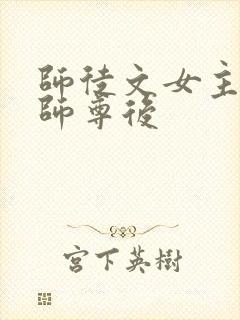 師徒文女主
師尊後
宮下英樹